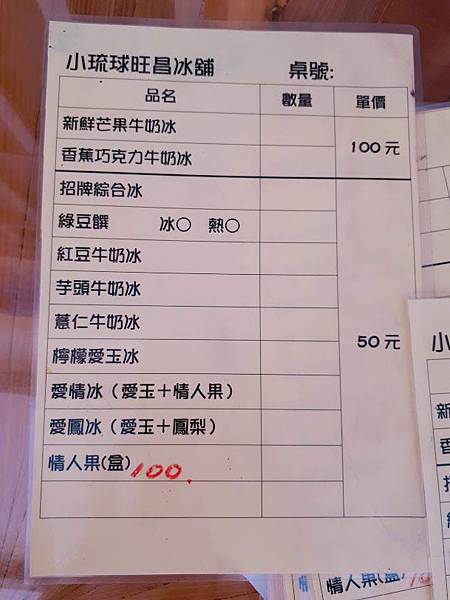 小琉球旺昌冰舖 桌號:
品名 數量 單價
新鮮芒果牛奶冰 100元
香蕉巧克力牛奶冰
招牌綜合冰
綠豆饌 冰○ 熱○
紅豆牛奶冰
芋頭牛奶冰
薏仁牛奶冰 50元
檸檬愛玉冰
愛情冰（愛玉＋情人果）
愛鳳冰（愛玉＋鳳梨）
情人果(盒) 100.
小
新
香
情人果(盒)